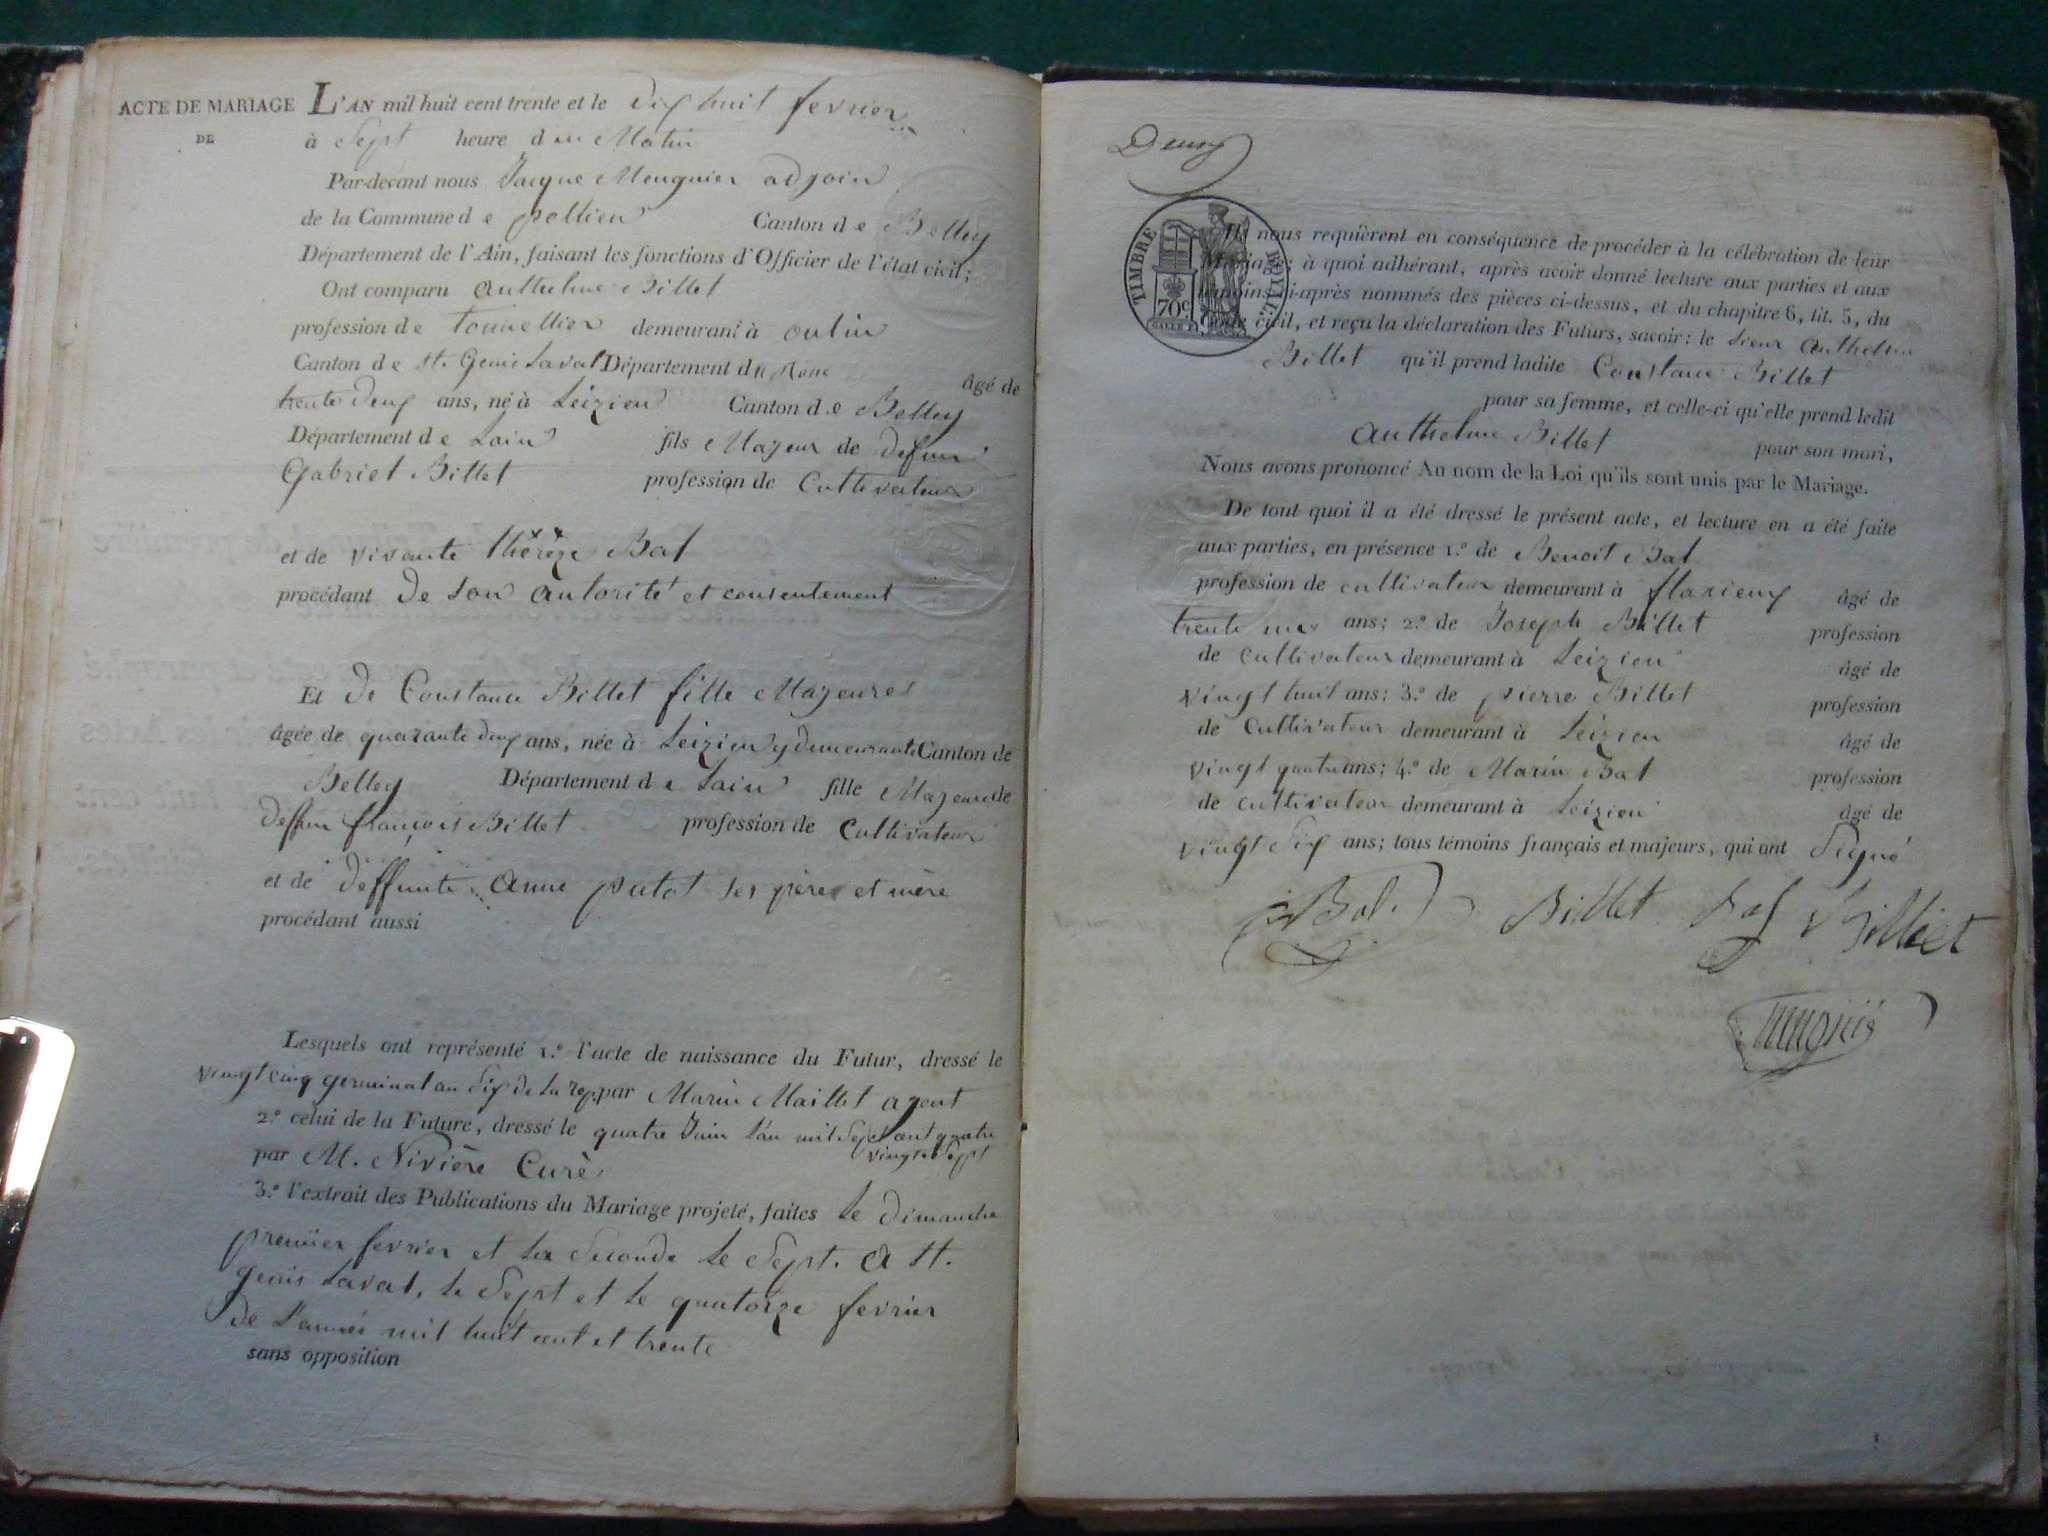 ACTE DE MARIAGE
DE
L'AN mil huit cent trente et le dix huit fevrier
à Sept heure du Matin
Par-devant nous Jacque Meugnier adjoin
de la Commune de pollieu Canton de Belley
Département de l'Ain, faisant les fonctions d'Officier de l'état civil;
Ont comparu anthelme Billet
profession de tonnellier demeurant à oulin
Canton de st. Genis Laval Département du Rône âgé de
trente deux ans, né à Leizieu Canton de Belley
Département de Lain fils Majeur de defun
Gabriel Billet profession de Cultivateur
et de vivante thérèze Bal
procédant de son autorité et consentement
Et de Constance Billet fille Majeure
âgée de quarante deux ans, née à Leizieu y demeurante Canton de
Belley Département de Lain fille Majeure de
deffun françois Billet profession de Cultivateur
et de deffunte anne putot ses père et mère
procédant aussi
Lesquels ont représenté 1.º l'acte de naissance du Futur, dressé le
vingt cinq germinal an Six de la rep. par Marin Maillet agent
2.º celui de la Future, dressé le quatre Juin L'an mil Sept cent quatre
vingt Sept
par M. Nivière Curé
3.º l'extrait des Publications du Mariage projeté, faites Le dimanche
premier fevrier et La Seconde Le Sept. a St.
Genis Laval, Le Sept et Le quatorze fevrier
de L'année mil huit cent et trente
sans opposition
Deux
TIMBRE ROYAL
70c
Ils nous requièrent en conséquence de procéder à la célébration de leur
Mariage; à quoi adhérant, après avoir donné lecture aux parties et aux
témoins ci-après nommés des pièces ci-dessus, et du chapitre 6, tit. 5, du
Code civil, et reçu la déclaration des Futurs, savoir: le Sieur anthelme
Billet qu'il prend ladite Constance Billet
pour sa femme, et celle-ci qu'elle prend ledit
anthelme Billet pour son mari,
Nous avons prononcé Au nom de la Loi qu'ils sont unis par le Mariage.
De tout quoi il a été dressé le présent acte, et lecture en a été faite
aux parties, en présence 1.º de Benoit Bal
profession de cultivateur demeurant à flaxieux âgé de
trente un ans; 2.º de Joseph Billet profession
de Cultivateur demeurant à Leizieu âgé de
vingt huit ans; 3.º de pierre Billet profession
de Cultivateur demeurant à Leizieu âgé de
vingt quatre ans; 4.º de Marin Bal profession
de cultivateur demeurant à Leizieu âgé de
vingt Six ans; tous témoins français et majeurs, qui ont Signé
Bal. Billet Bal Billiet